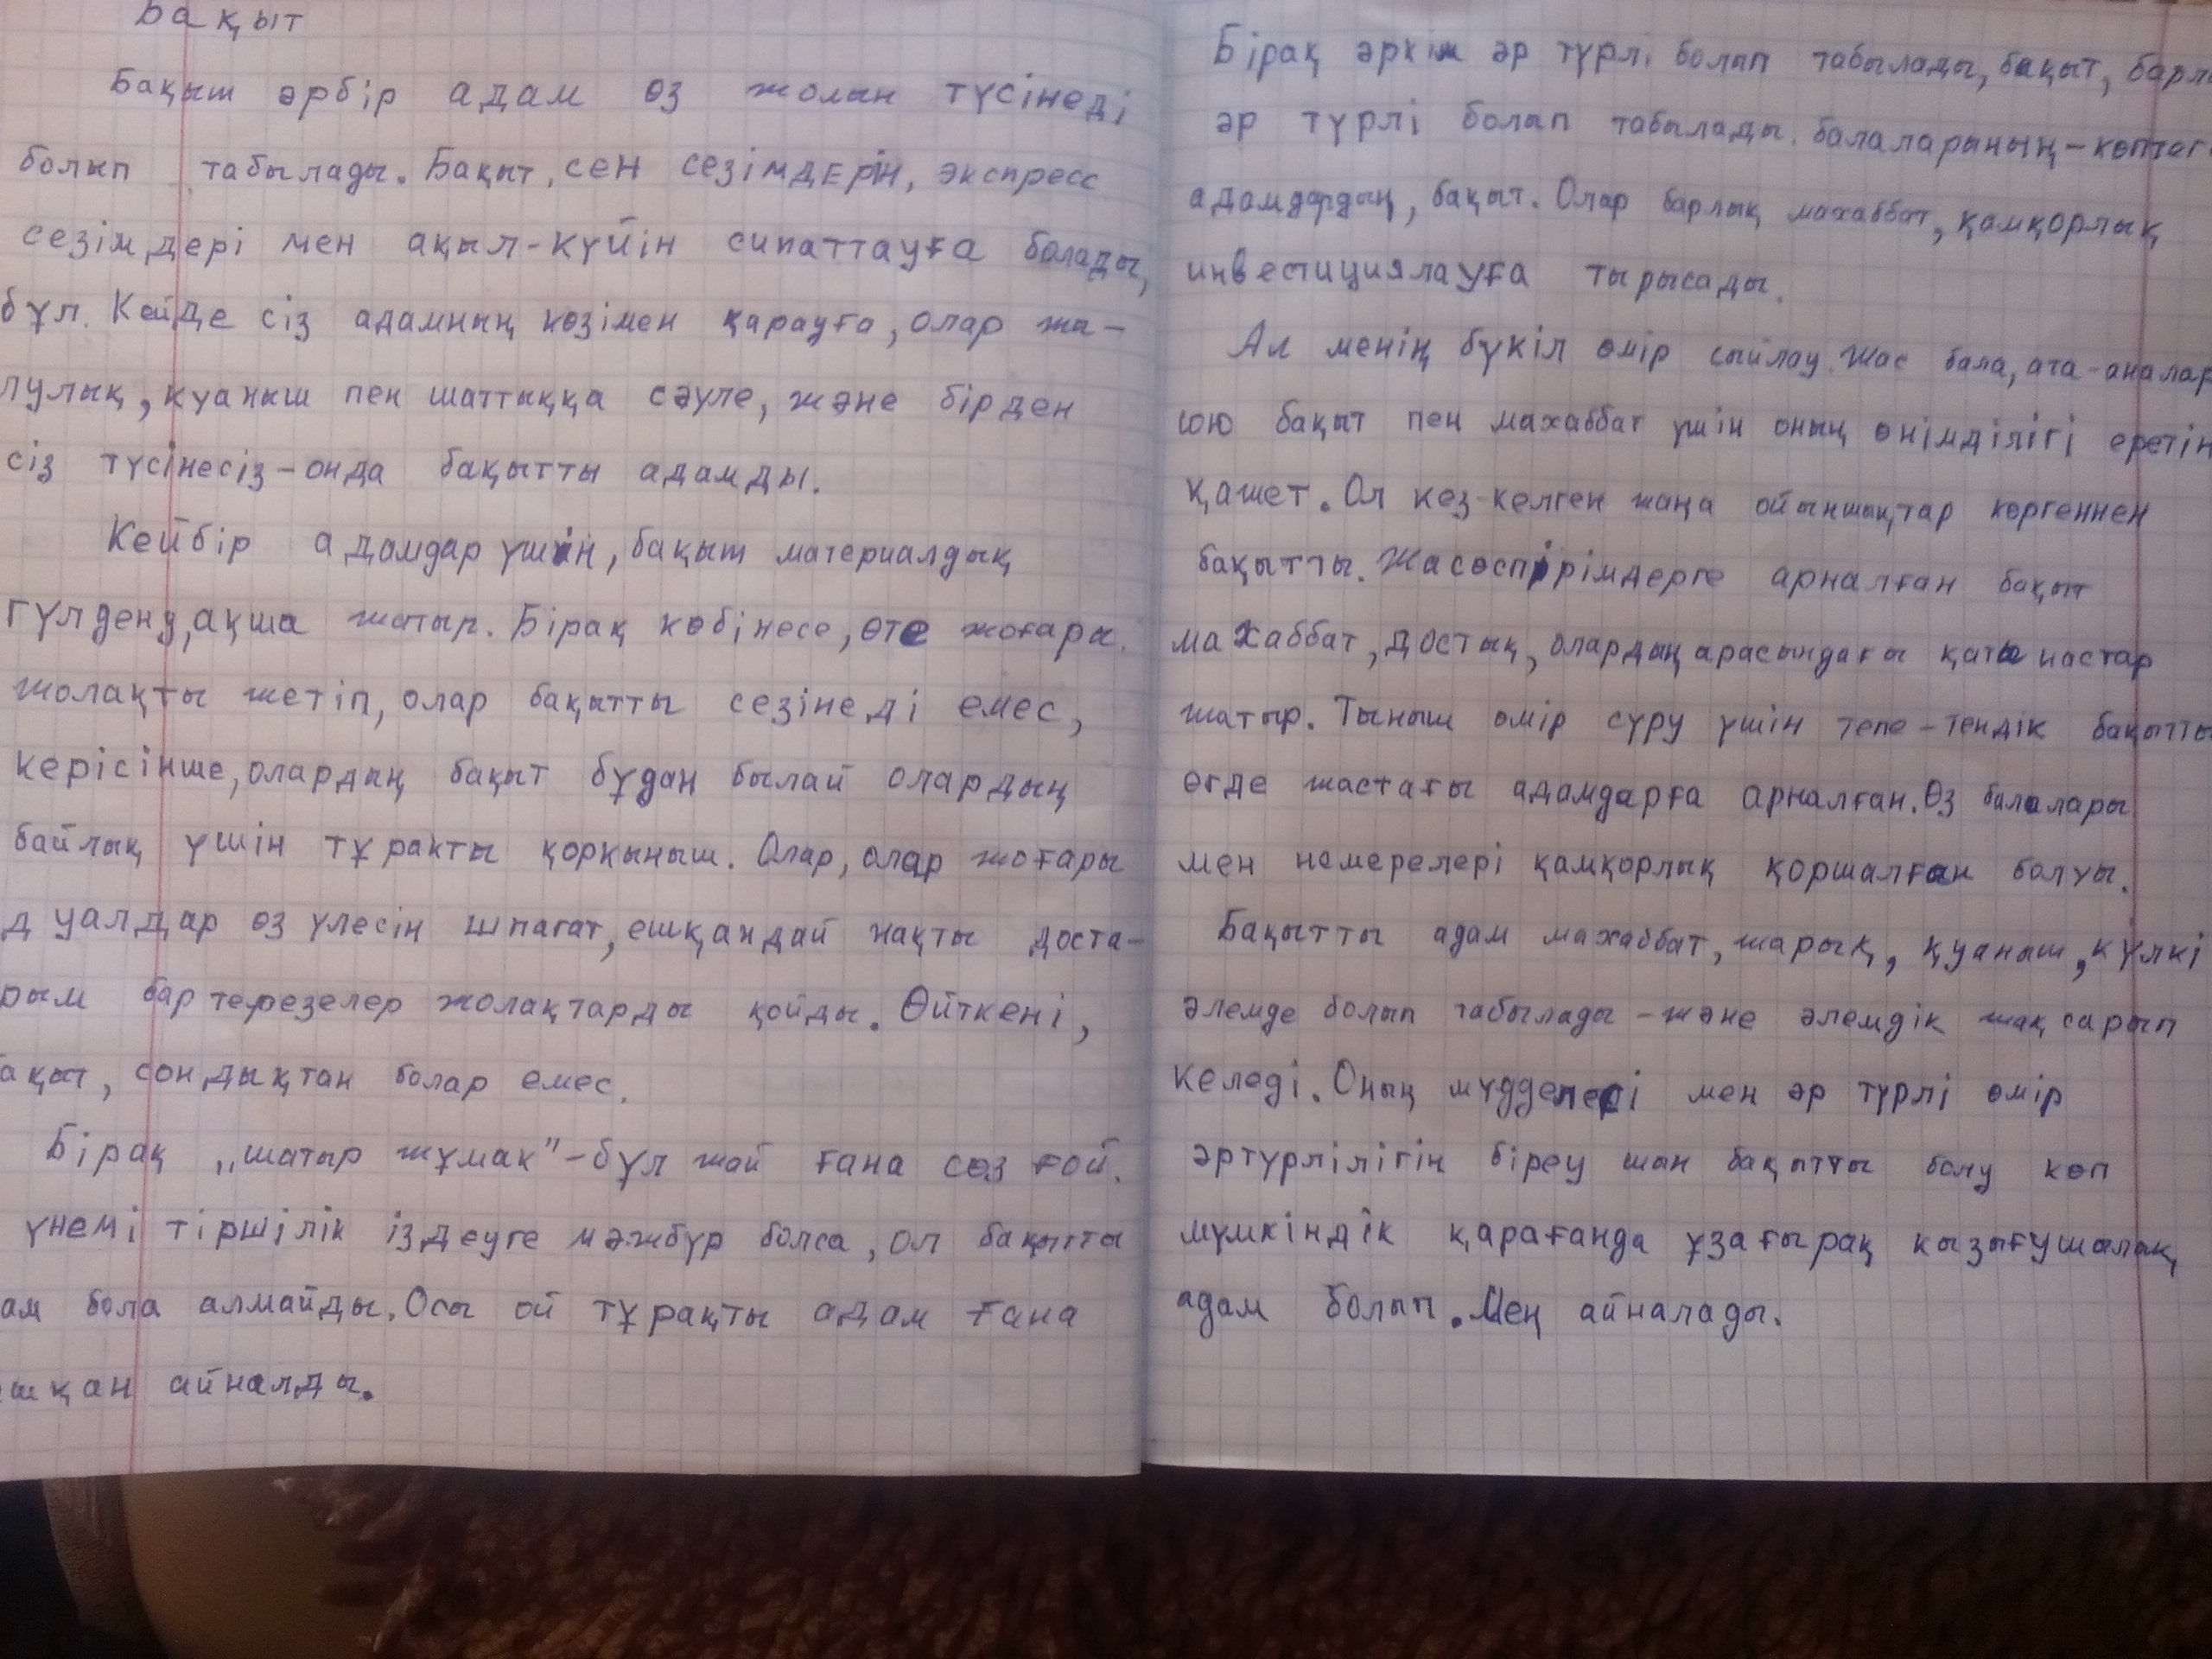 Бақыт
Бақыт әрбір адам өз жолын түсінеді
болып табылады. Бақыт, сен сезімдерін, экспресс
сезімдері мен ақыл-күйін сипаттауға болады,
бұл. Кейде сіз адамның көзімен қарауға, олар жы-
лулық, қуаныш пен шаттыққа сәуле, және бірден
сіз түсінесіз-онда бақытты адамды.
Кейбір адамдар үшін, бақыт материалдық
гүлдену, ақша жатыр. Бірақ көбінесе, өте жоғары.
жолақты жетіп, олар бақытты сезінеді емес,
керісінше, олардың бақыт бұдан былай олардың
байлық үшін тұрақты қорқыныш. Олар, олар жоғары
дуалдар өз үлесін шпагат, ешқандай нақты доста-
рым бар терезелер жолақтарды қойды. Өйткені,
ақыт, сондықтан болар емес.
Бірақ „шатыр жұмақ"-бұл жай ғана сөз ғой.
үнемі тіршілік іздеуге мәжбүр болса, ол бақытты
ам бола алмайды. Осы ой тұрақты адам ғана
шқан айналды.
Бірақ әркім әр түрлі болып табылады, бақыт, барлы
әр түрлі болып табылады. балаларының-көптег
адамдардың, бақыт. Олар барлық махаббат, қамқорлық
инвестициялауға тырысады.
Ал менің бүкіл өмір сыйлау. Жас бала, ата-аналар
сою бақыт пен махаббат үшін оның өнімділігі еретін
қажет. Ол кез-келген жаңа ойыншықтар көргеннен
бақытты. Жасөспірімдерге арналған бақыт
махаббат, достық, олардың арасындағы қатынастар
жатыр. Тыныш өмір сүру үшін тепе-теңдік бақытты
егде жастағы адамдарға арналған. Өз балалары
мен немерелері қамқорлық қоршалған болуы.
Бақытты адам махаббат, жарық, қуаныш, күлкі
әлемде болып табылады-және әлемдік жақсарып
келеді. Оның мүдделері мен әр түрлі өмір
әртүрлілігін біреу шын бақытты болу көп
мүмкіндік қарағанда ұзағырақ қызығушылық
адам болып. Мен айналады.